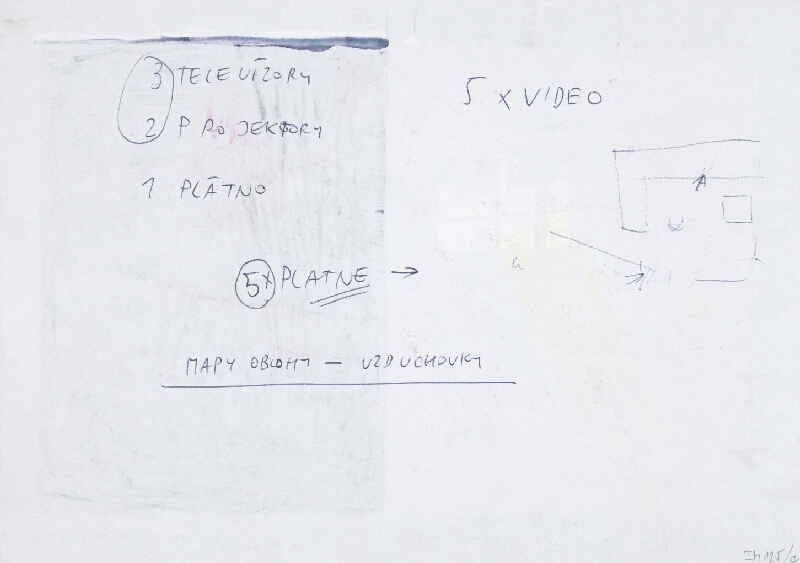 3 TELEVÍZORY
2 PROJEKTORY
1 PLÁTNO
5x PLATNE →
MAPY OBLOHY — VZDUCHOVKY
5 x VIDEO
A